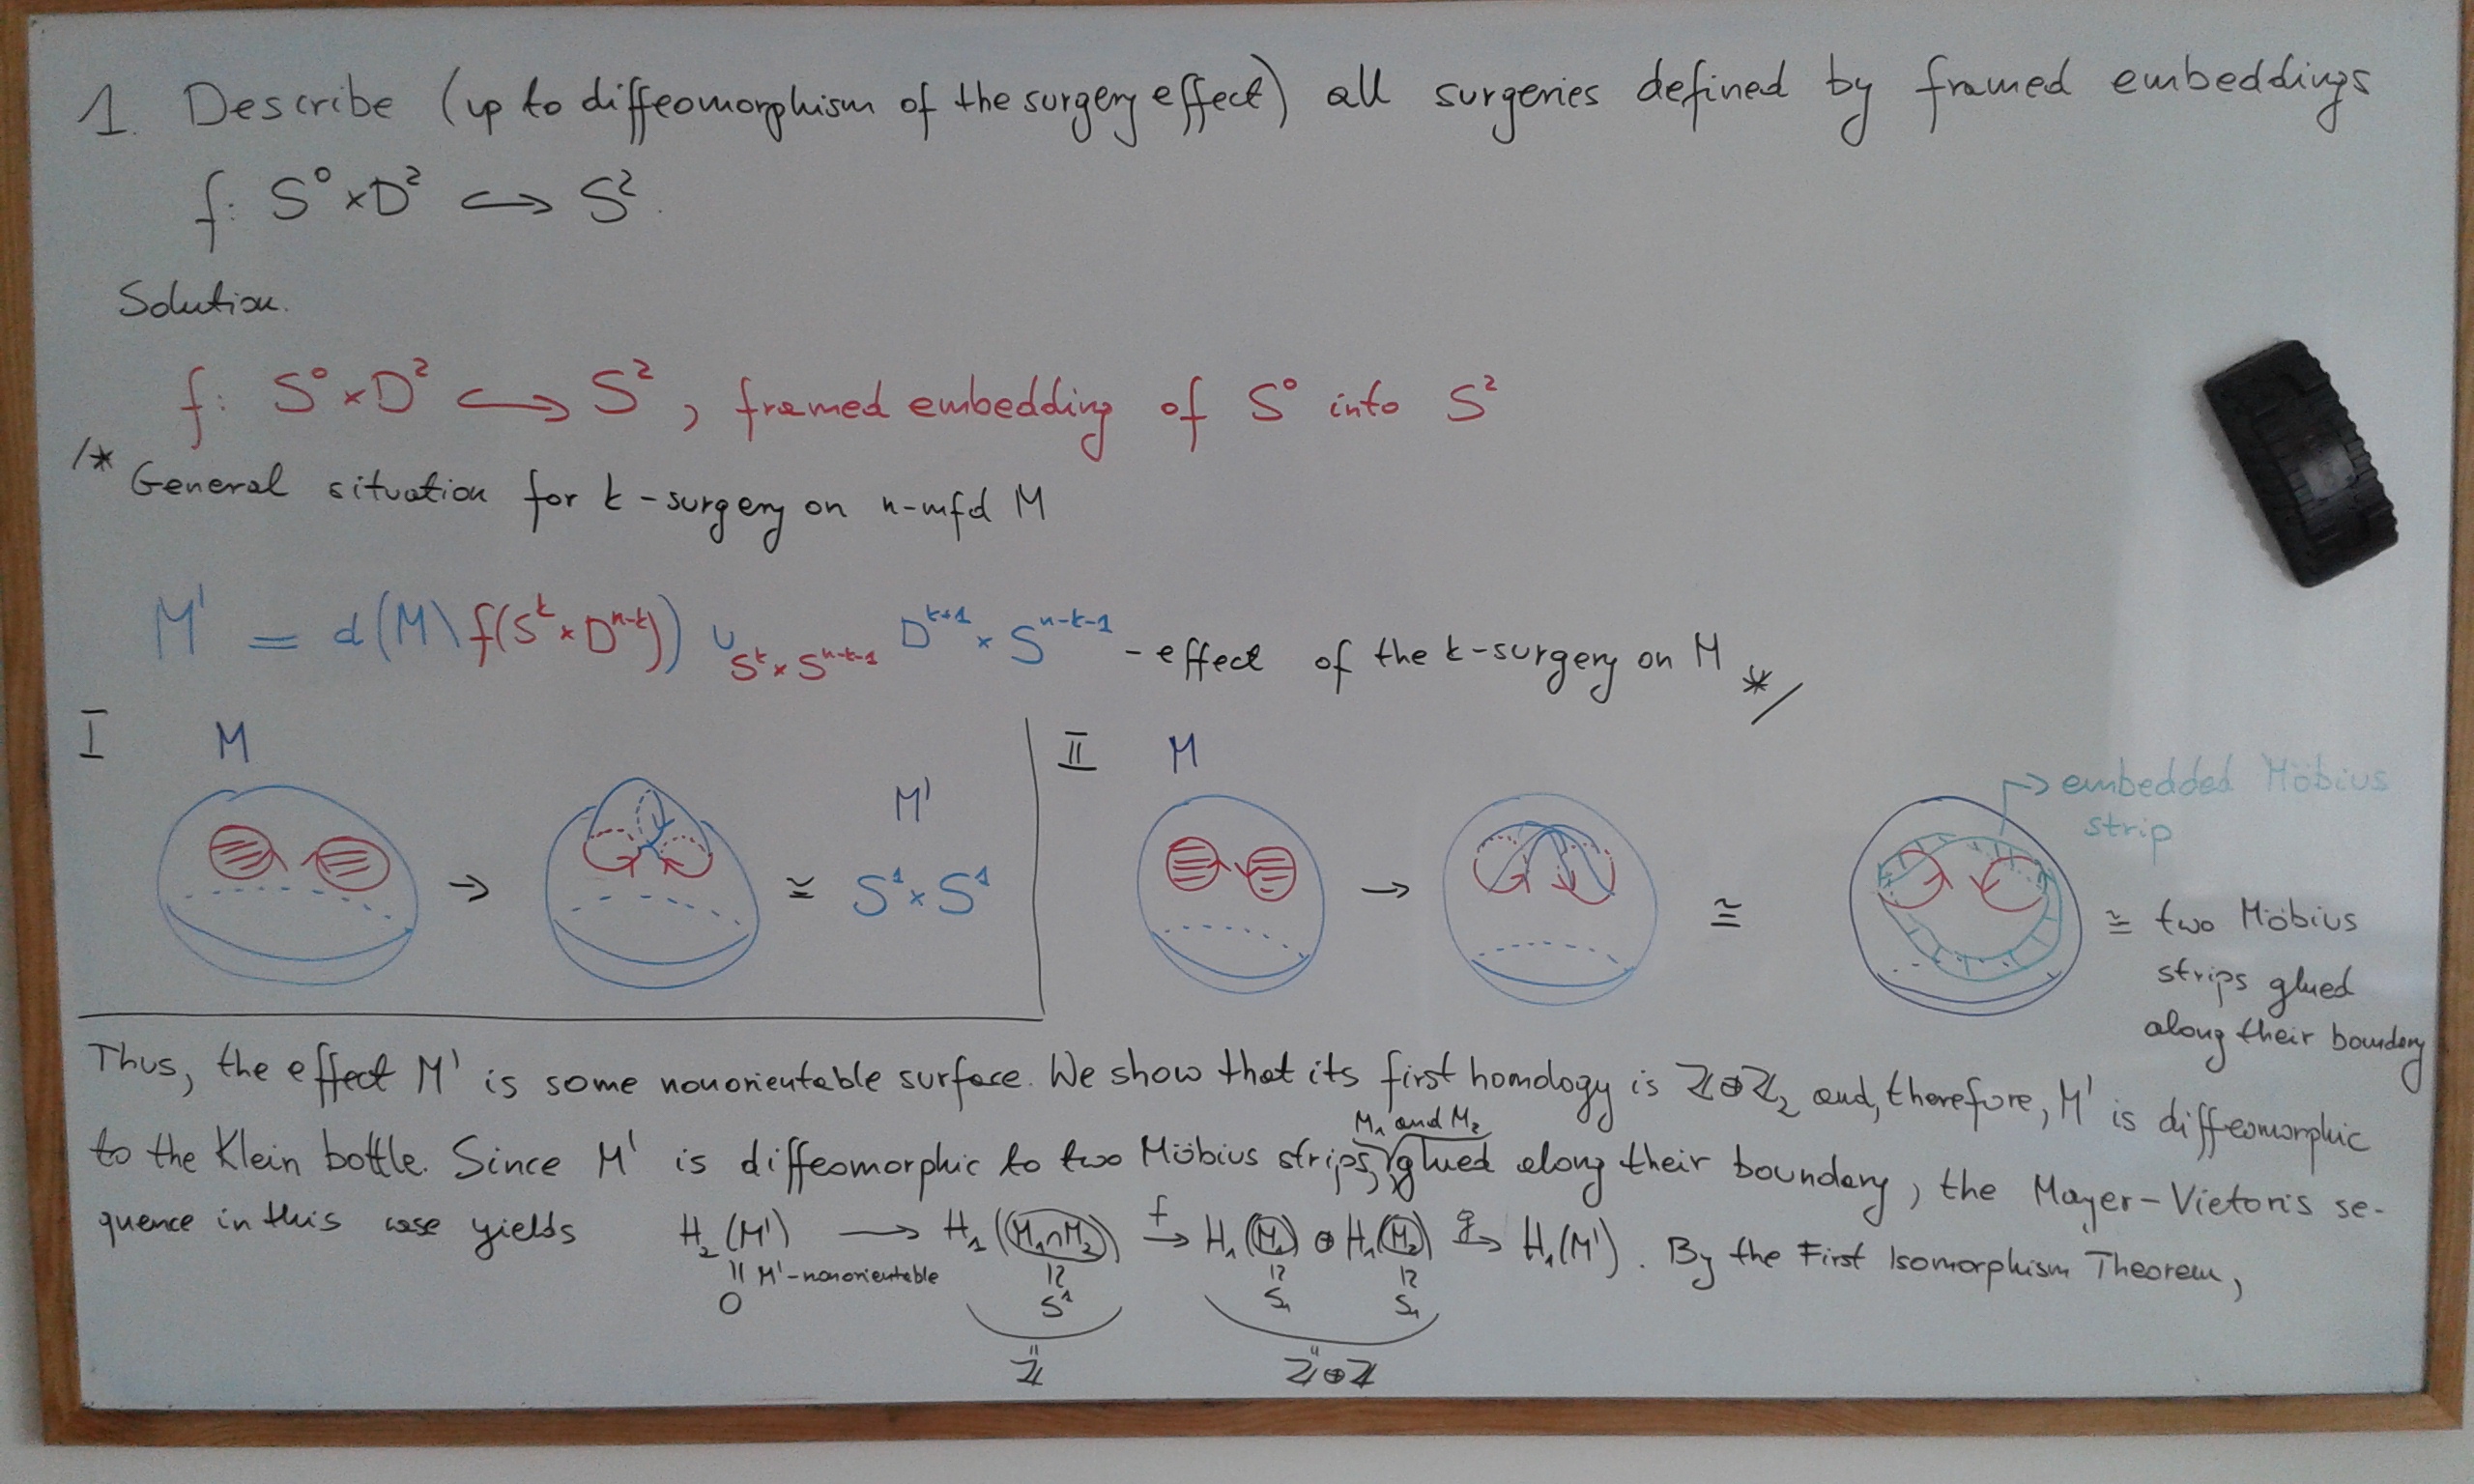 1. Describe (up to diffeomorphism of the surgery effect) all surgeries defined by framed embeddings
f: S⁰×D² ↪ S².
Solution.
f: S⁰×D² ↪ S², framed embedding of S⁰ into S²
/* General situation for k-surgery on n-mfd M
M' = cl(M\f(Sᵏ×Dⁿ⁻ᵏ)) ∪_{Sᵏ×Sⁿ⁻ᵏ⁻¹} Dᵏ⁺¹×Sⁿ⁻ᵏ⁻¹ - effect of the k-surgery on M */
I M
→ ≅ M' S¹×S¹
II M
→ ≅
embedded Möbius
strip
≅ two Möbius
strips glued
along their boundary
Thus, the effect M' is some nonorientable surface. We show that its first homology is ℤ⊕ℤ₂ and, therefore, M' is diffeomorphic
to the Klein bottle. Since M' is diffeomorphic to two Möbius strips, M₁ and M₂ glued along their boundary, the Mayer-Vietoris se-
quence in this case yields H₂(M') → H₁(M₁∩M₂) →f H₁(M₁)⊕H₁(M₂) →g H₁(M'). By the First Isomorphism Theorem,
|| M'-nonorientable
0 S¹ S₁ S₁
ℤ ℤ⊕ℤ